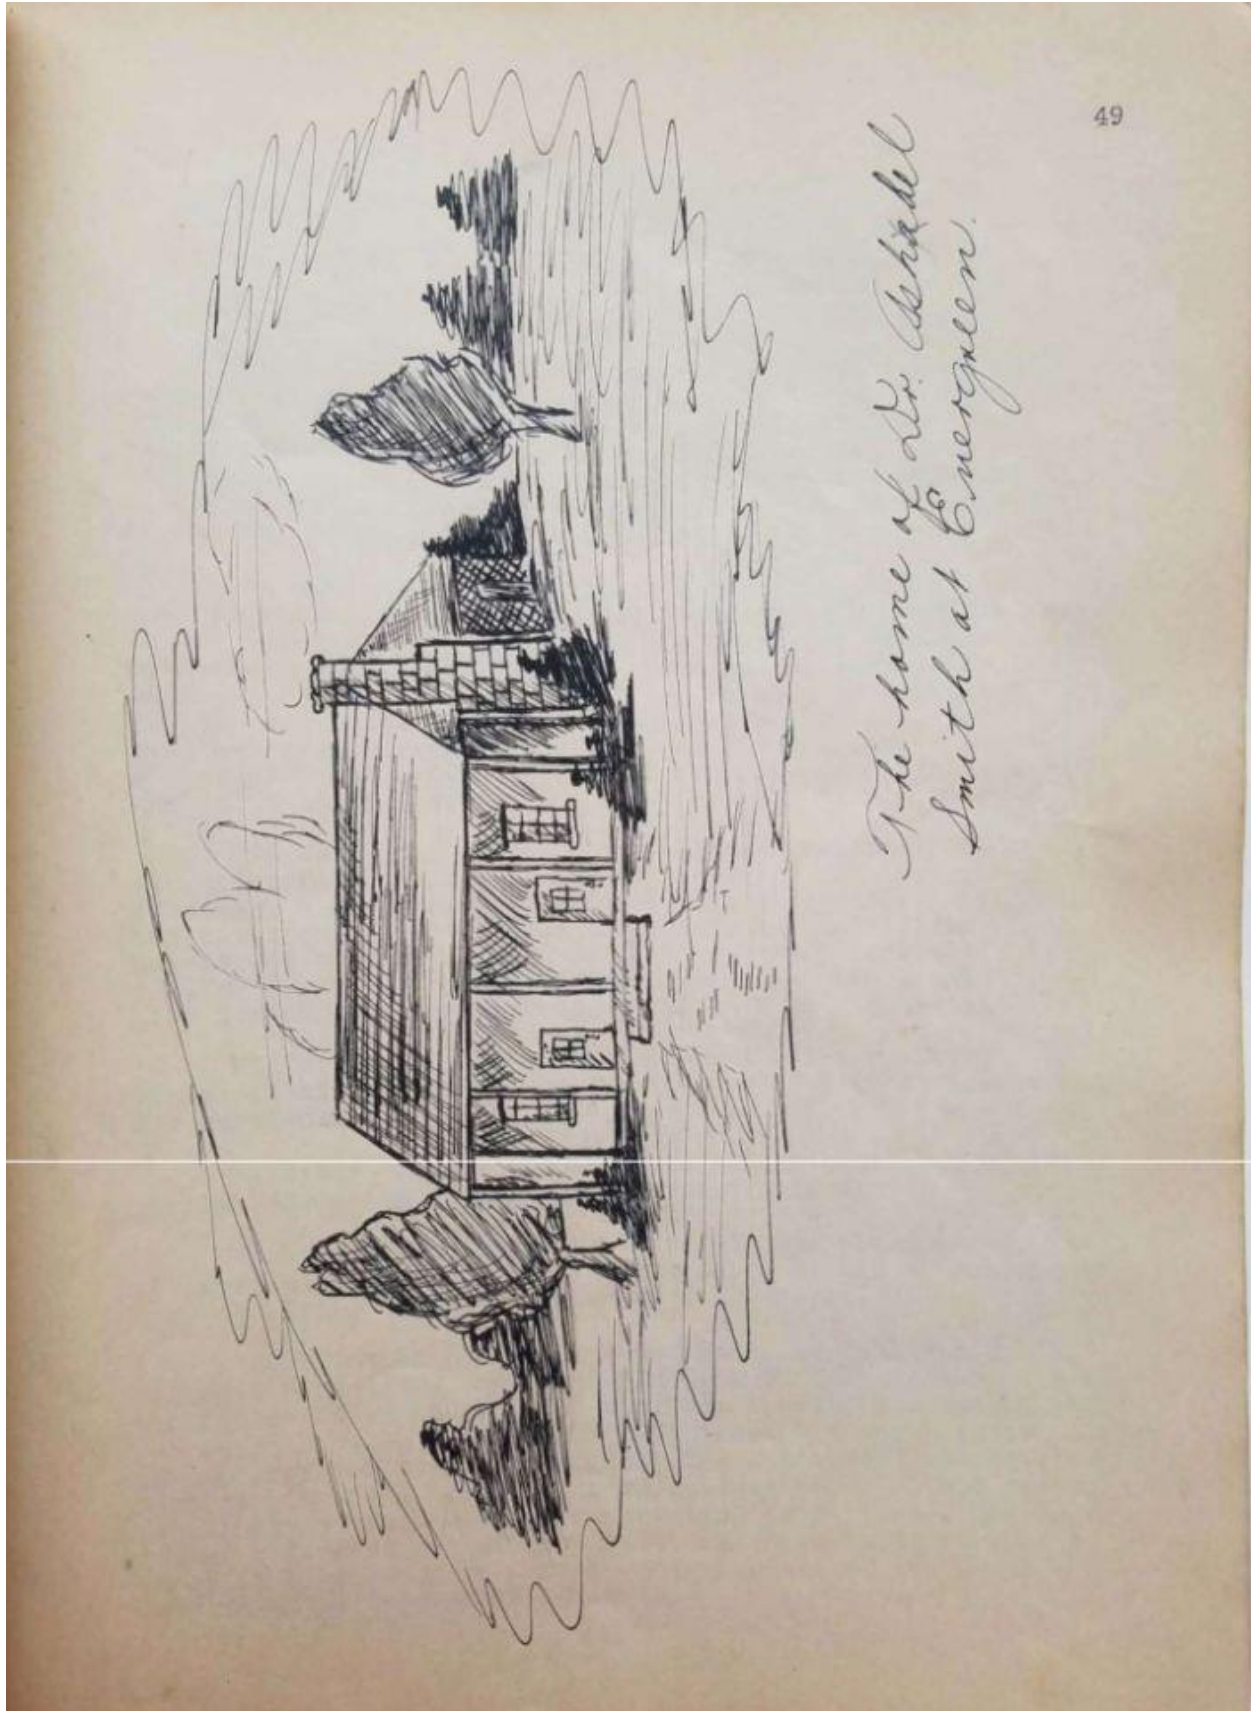 49
The home of Dr. Ashbel
Smith at Evergreen.